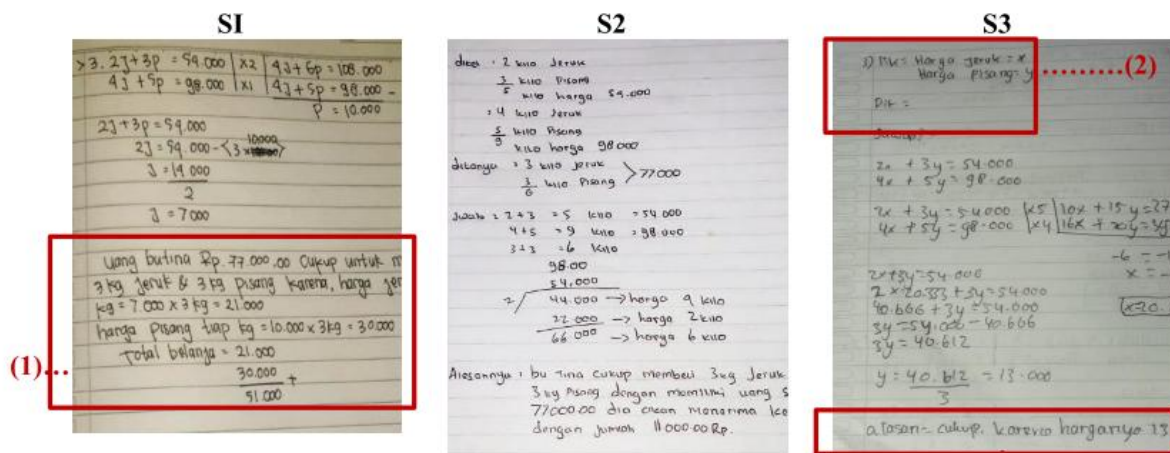 SI
> 3. 2J + 3p = 54.000 | x2 | 4J + 6p = 108.000
4J + 5p = 98.000 | x1 | 4J + 5p = 98.000 -
p = 10.000
2J + 3p = 54.000
2J = 54.000 - (3 x 10000)
J = 14.000
2
J = 7000
uang butina Rp. 77.000,00 cukup untuk m
3 kg jeruk & 3 kg pisang karena, harga jer
kg = 7.000 x 3 kg = 21.000
harga pisang tiap kg = 10.000 x 3kg = 30.000
Total belanja = 21.000
30.000 +
51.000
(1)...
S2
diket : 2 kilo Jeruk
3 kilo Pisang
5 kilo harga 54.000
= 4 kilo Jeruk
5 kilo Pisang
9 kilo harga 98000
ditanya : 3 kilo jeruk
3 kilo Pisang > 77000
6
Jwab = 2 + 3 = 5 kilo = 54.000
4 + 5 = 9 kilo = 98.000
3 + 3 = 6 Kilo
98.00
54.000
2 44.000 -> harga 9 kilo
22.000 -> harga 2 kilo
66.000 -> harga 6 kilo
Alesannya : bu Tina cukup membeli 3kg Jeruk
3 kg Pisang dengan memiliki uang s
77000.00 dia akan menerima ke
dengan jumlah 11000.00 Rp.
S3
Dik = Harga Jeruk = x
Harga Pisang = y
.........(2)
Dit =
Jawab =
2x + 3y = 54.000
4x + 5y = 98.000
2x + 3y = 54.000 | x5 | 10x + 15y = 27
4x + 5y = 98.000 | x4 | 16x + 20y = 39
-6 = -1
x = -
2x + 3y = 54.000
2 x 20.333 + 3y = 54.000
40.666 + 3y = 54.000
3y = 54.000 - 40.666
3y = 40.612
y = 40.612 = 13.000
3
alasan = cukup. karena harganya 13